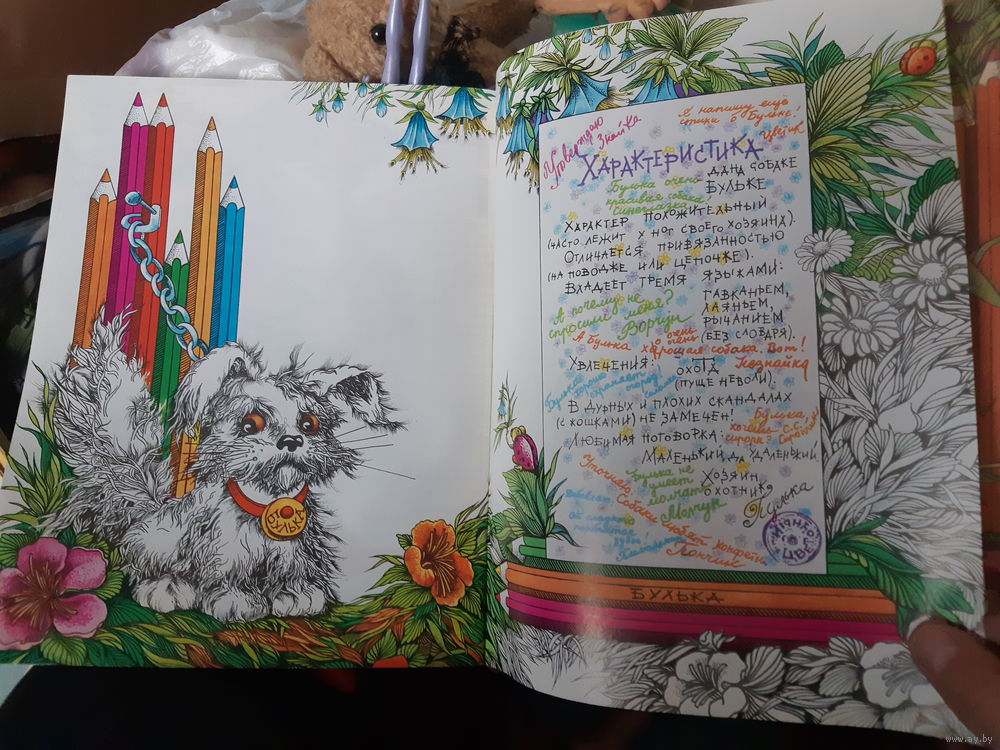 Утверждаю
Знайка
Я напишу ещё
стихи о Бульке!
Цветик
ХАРАКТЕРИСТИКА
ДАНА СОБАКЕ
БУЛЬКЕ
Булька очень
красивая собака!
Синеглазка
ХАРАКТЕР ПОЛОЖИТЕЛЬНЫЙ
(ЧАСТО ЛЕЖИТ У НОГ СВОЕГО ХОЗЯИНА).
ОТЛИЧАЕТСЯ ПРИВЯЗАННОСТЬЮ
(НА ПОВОДКЕ ИЛИ ЦЕПОЧКЕ).
ВЛАДЕЕТ ТРЕМЯ ЯЗЫКАМИ:
ГАВКАНЬЕМ,
ЛАЯНЬЕМ,
РЫЧАНИЕМ
(БЕЗ СЛОВАРЯ).
А почему не
спросили меня?
Ворчун
А Булька хорошая собака. Вот!
очень
очень
Незнайка
УВЛЕЧЕНИЯ:
ОХОТА
(ПУЩЕ НЕВОЛИ).
Булька
хорошо
охраняет
огород
В ДУРНЫХ И ПЛОХИХ СКАНДАЛАХ
(С КОШКАМИ) НЕ ЗАМЕЧЕН!
Булька,
хочешь с.с.
сиропа? Сиропчик
ЛЮБИМАЯ ПОГОВОРКА:
МАЛЕНЬКИЙ, ДА УДАЛЕНЬКИЙ
Булька не
умеет
молчать
Молчун
ХОЗЯИН
ОХОТНИК
Пулька
Уточняю
Собаки любят конфеты
Пончик
От сладкого
зубы!
БУЛЬКА
ОТ
ПУЛЬКА
www.ay.by